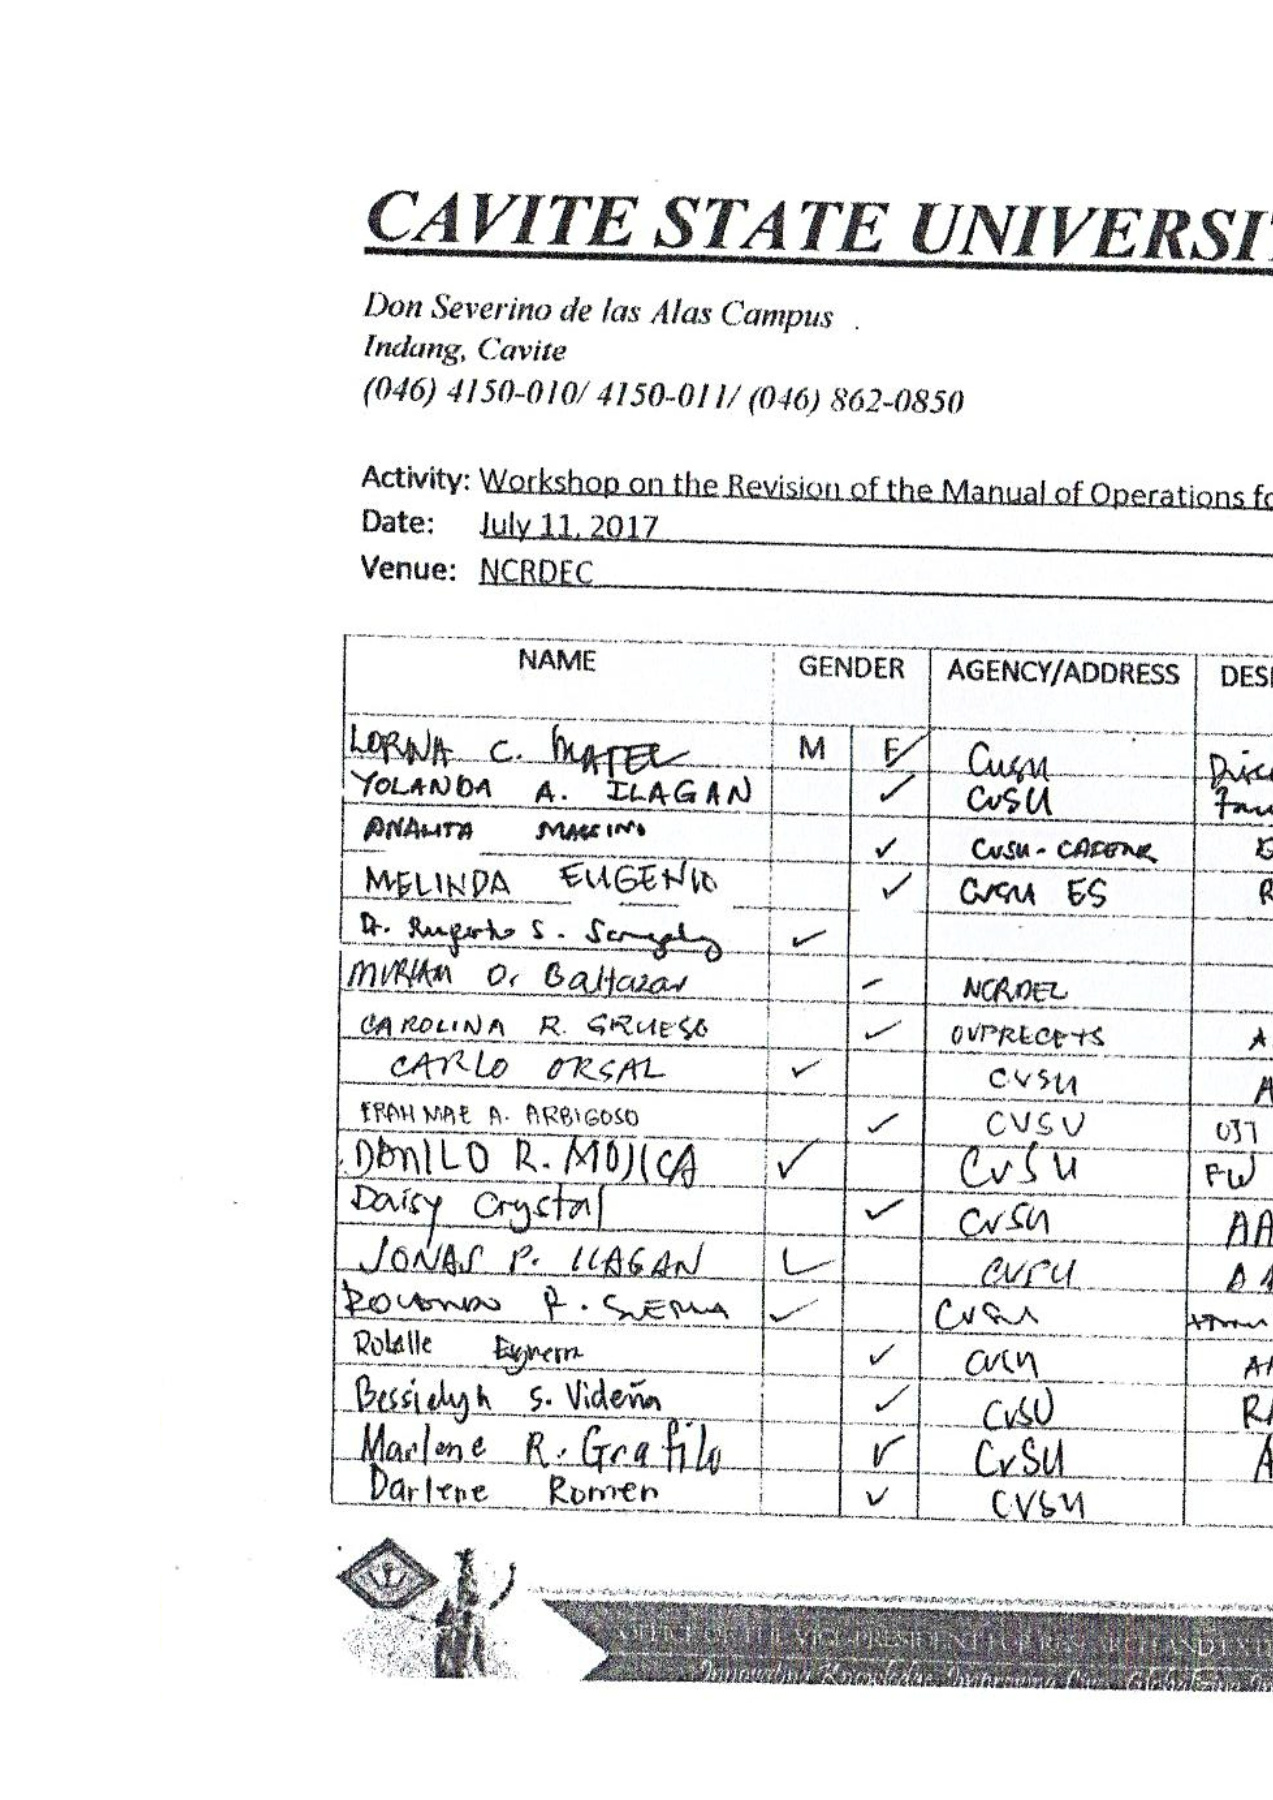 CAVITE STATE UNIVERSI
Don Severino de las Alas Campus
Indang, Cavite
(046) 4150-010/ 4150-011/ (046) 862-0850
Activity: Workshop on the Revision of the Manual of Operations fo
Date: July 11, 2017
Venue: NCRDEC
NAME GENDER AGENCY/ADDRESS DESI
LORNA C. MATEL M F ✓ CvSU
YOLANDA A. ILAGAN ✓ CvSU
ANALITA ✓ CvSU-
MELINDA EUGENIO ✓ CvSU ES R
Dr. S. ✓
MIRIAM O. Baltazar NCRDEC
CAROLINA R. GRUESO ✓ OVPRECETS A
CARLO ORSAL ✓ CVSU A
A. ARBIGOSO ✓ CVSU OJT
DANILO R. MOJICA ✓ CvSU FW
Daisy Crystal ✓ CvSU AA
JONAS P. ILAGAN ✓ CVSU
✓ CvSU
✓ CvSU
S. Videña ✓ CvSU
Marlene R. Grafilo ✓ CvSU A
Darlene Romen ✓ CVSU
OFFICE OF THE VICE-PRESIDENT FOR RESEARCH AND EXTE